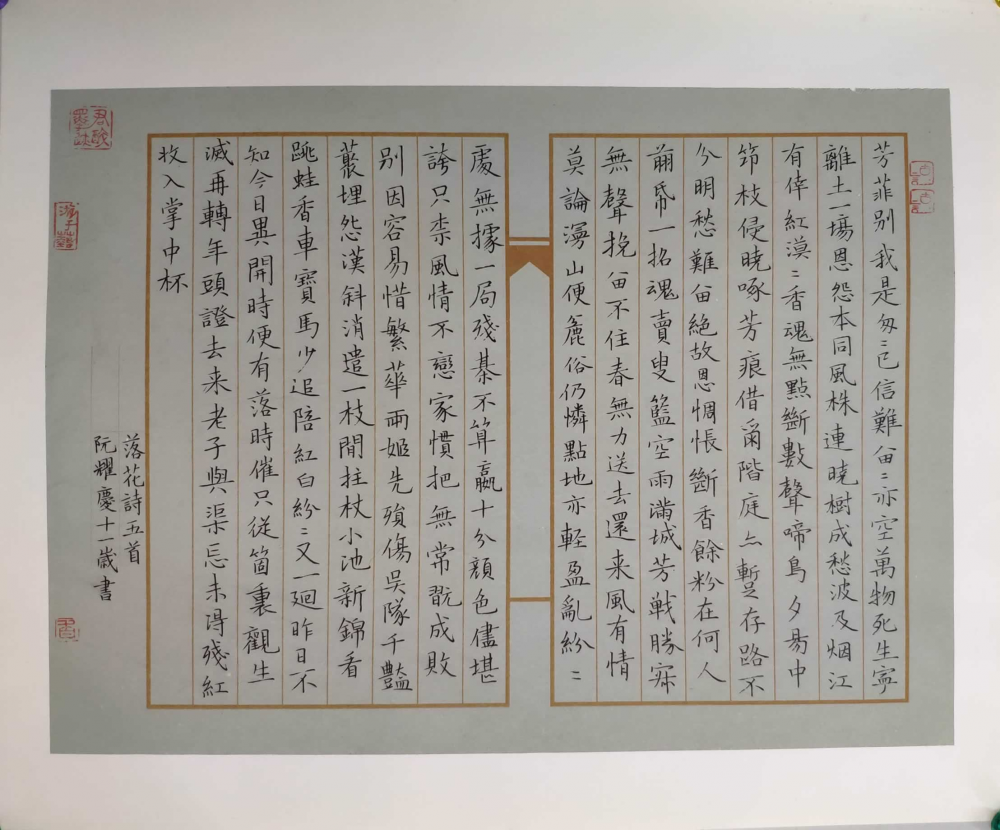 芳菲別我是匆〻已信難留〻亦空萬物死生寧
離土一場恩怨本同風株連曉樹成愁波及烟江
有倖紅漠〻香魂無點斷數聲啼鳥夕昜中
節枝侵曉啄芳痕借爾階庭亦暫存路不
分明愁難留絕故恩惆悵斷香餘粉在何人
剪帋一招魂賣叟籃空雨滿城芳戰勝寂
無聲挽留不住春無力送去還来風有情
莫論漫山便麄俗仍憐點地亦輕盈亂紛〻
處無據一局殘棊不算贏十分顏色儘堪
誇只柰風情不戀家慣把無常翫成敗
別因容易惜繁華兩姬先殞傷吳隊千豔
叢埋怨漢斜消遣一枝閒拄杖小池新錦看
跳蛙香車寶馬少追陪紅白紛〻又一廻昨日不
知今日異開時便有落時催只從箇裏觀生
滅再轉年頭證去来老子與渠忘未得殘紅
收入掌中杯
落花詩五首
阮耀慶十一歲書